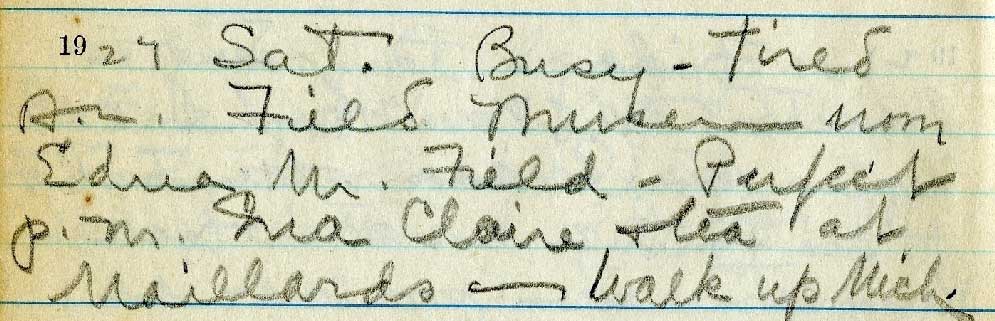 1927 Sat. Busy - Tired
A.M. Field Museum
Edna M. Field - Perfect
p.m. Ina Claire + tea at
Maillards — walk up Mich.